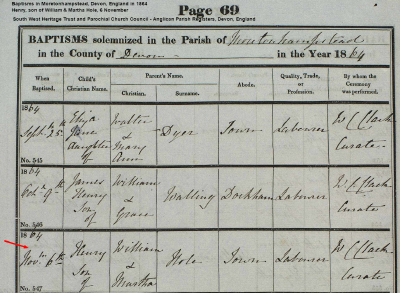 Baptisms in Moretonhampstead, Devon, England in 1864
Henry, son of William & Martha Hole, 6 November
South West Heritage Trust and Parochial Church Council - Anglican Parish Registers, Devon, England
Page 69
BAPTISMS solemnized in the Parish of Moretonhampstead
in the County of Devon in the Year 1864
When Baptised. Child's Christian Name. Parent's Name. Christian. Surname. Abode. Quality, Trade, or Profession. By whom the Ceremony was performed.
1864
Septr 25th
No. 545
Eliza Jane daughter of
Walter & Mary Ann
Dyer
Town
Labourer
W C Clack Curate
Octr 9th
No. 546
James Henry Son of
William & Grace
Watling
Dockham
Labourer
W C Clack Curate
1864
Novr 6th
No. 547
Henry Son of
William & Martha
Hole
Town
Labourer
W C Clack Curate